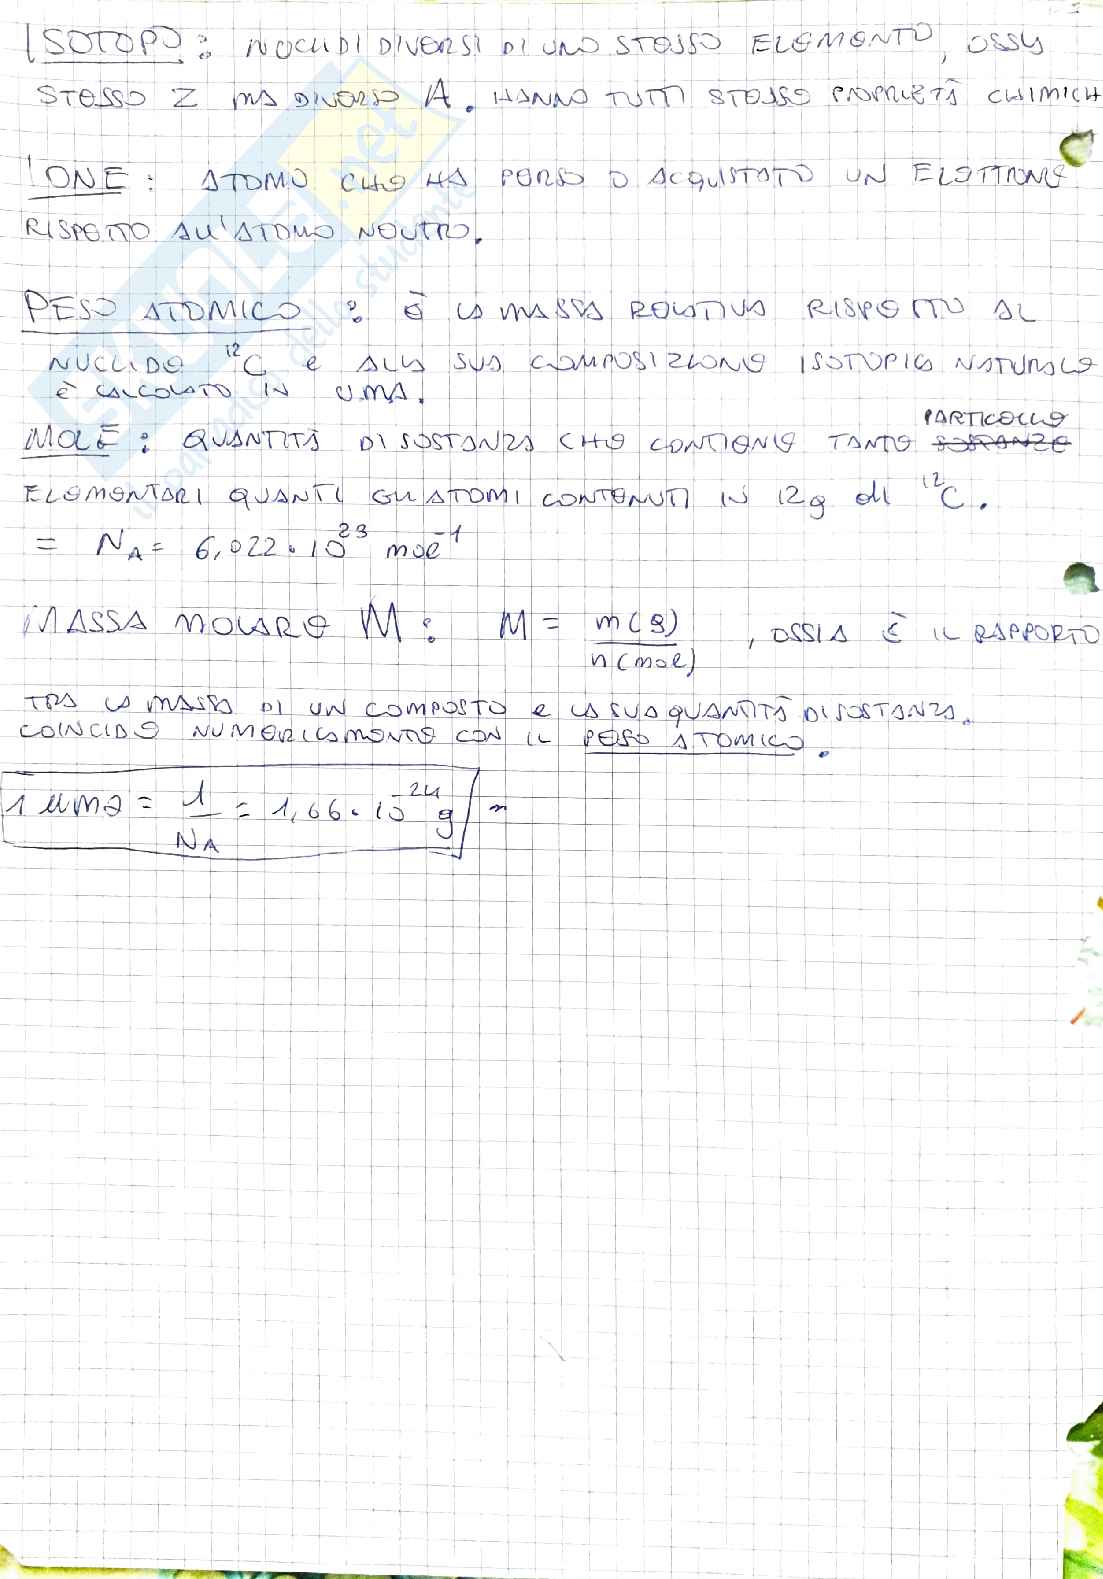 ISOTOPO: NUCLIDI DIVERSI DI UNO STESSO ELEMENTO, OSSIA
STESSO Z MA DIVERSO A. HANNO TUTTI STESSO PROPRIETÀ CHIMICH
IONE: ATOMO CHE HA PERSO O ACQUISTATO UN ELETTRONE
RISPETTO ALL'ATOMO NEUTRO.
PESO ATOMICO: È LA MASSA RELATIVA RISPETTO AL
NUCLIDE ¹²C E ALLA SUA COMPOSIZIONE ISOTOPICA NATURALE
È CALCOLATO IN U.M.A.
PARTICELLE
MOLE: QUANTITÀ DI SOSTANZA CHE CONTIENE TANTE SOSTANZE
ELEMENTARI QUANTI GLI ATOMI CONTENUTI IN 12g di ¹²C.
= N_A = 6,022·10²³ mol⁻¹
MASSA MOLARE M: M = m(g)/n(mol), OSSIA È IL RAPPORTO
TRA LA MASSA DI UN COMPOSTO E LA SUA QUANTITÀ DI SOSTANZA.
COINCIDE NUMERICAMENTE CON IL PESO ATOMICO.
1 uma = 1/N_A = 1,66·10⁻²⁴ g
SKUOLA.net